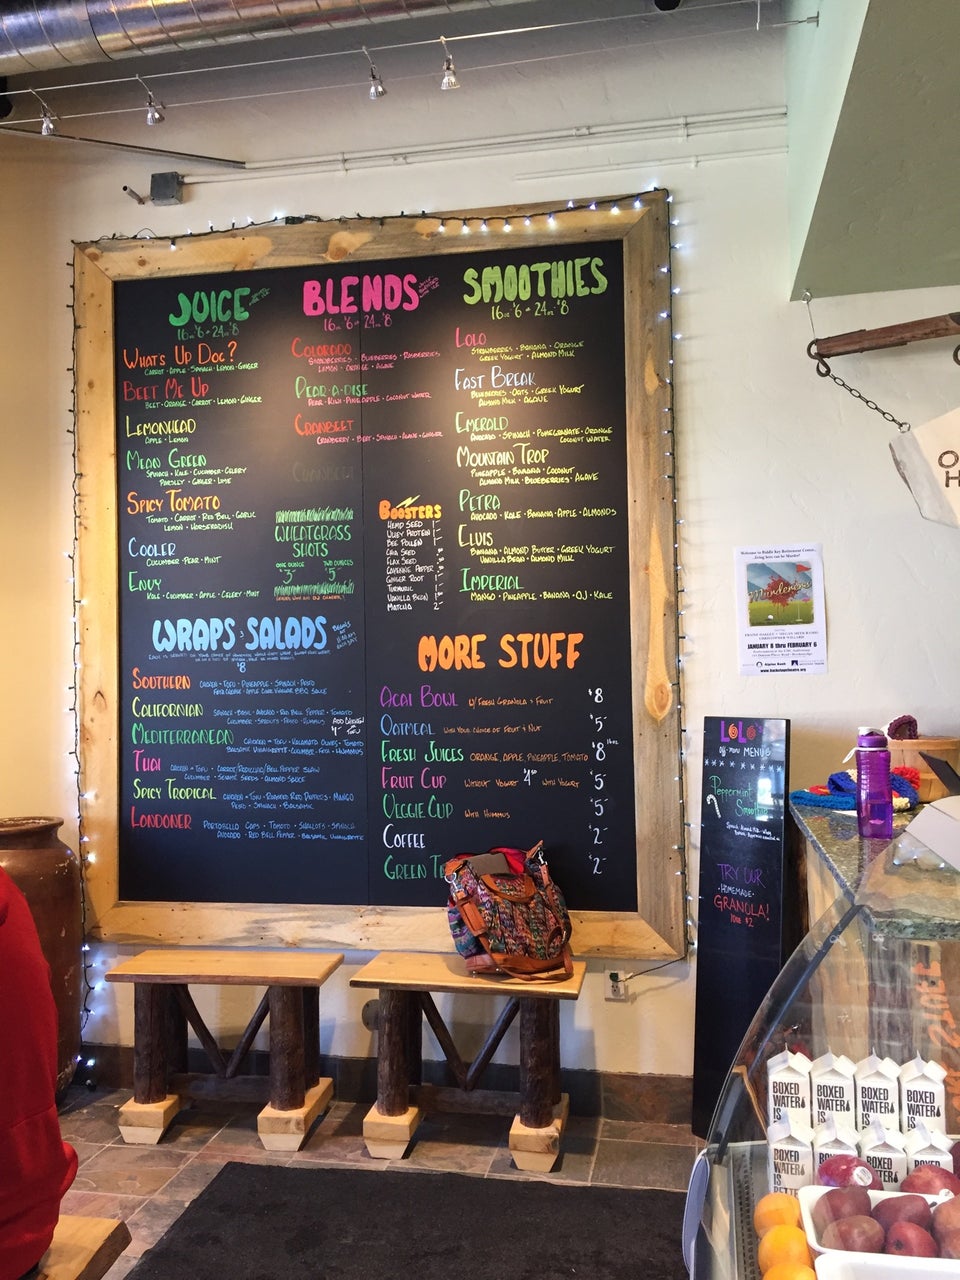 JUICE
16oz $6 • 24oz $8
WHAT'S UP DOC?
CARROT • APPLE • SPINACH • LEMON • GINGER
BEET ME UP
BEET • ORANGE • CARROT • LEMON • GINGER
LEMONHEAD
APPLE • LEMON
MEAN GREEN
SPINACH • KALE • CUCUMBER • CELERY
PARSLEY • GINGER • LIME
SPICY TOMATO
TOMATO • CARROT • RED BELL • GARLIC
LEMON • HORSERADISH
COOLER
CUCUMBER • PEAR • MINT
ENVY
KALE • CUCUMBER • APPLE • CELERY • MINT
BLENDS
16oz $6 • 24oz $8
COLORADO
STRAWBERRIES • BLUEBERRIES • RASPBERRIES
LEMON • ORANGE • AGAVE
PEAR-A-DISE
PEAR • KIWI • PINEAPPLE • COCONUT WATER
CRANBEET
CRANBERRY • BEET • SPINACH • AGAVE • GINGER
WHEATGRASS
SHOTS
ONE OUNCE TWO OUNCES
$3 $5
SMOOTHIES
16oz $6 • 24oz $8
LOLO
STRAWBERRIES • BANANA • ORANGE
GREEK YOGURT • ALMOND MILK
FAST BREAK
BLUEBERRIES • OATS • GREEK YOGURT
ALMOND MILK • AGAVE
EMERALD
AVOCADO • SPINACH • POMEGRANATE • ORANGE
COCONUT WATER
MOUNTAIN TROP
PINEAPPLE • BANANA • COCONUT
ALMOND MILK • BLUEBERRIES • AGAVE
PETRA
AVOCADO • KALE • BANANA • APPLE • ALMONDS
ELVIS
BANANA • ALMOND BUTTER • GREEK YOGURT
VANILLA BEAN • ALMOND MILK
IMPERIAL
MANGO • PINEAPPLE • BANANA • O.J • KALE
BOOSTERS
HEMP SEED 1-
WHEY PROTEIN 1-
BEE POLLEN 1-
CHIA SEED
FLAX SEED
CAYENNE PEPPER
GINGER ROOT
TURMERIC
VANILLA BEAN
MATCHA 2-
WRAPS & SALADS
$8
SOUTHERN CHICKEN or TOFU • PINEAPPLE • SPINACH • PICKO
FETA CHEESE • APPLE CIDER VINEGAR BBQ SAUCE
CALIFORNIAN SPINACH • BASIL • AVOCADO • RED BELL PEPPER • TOMATO
CUCUMBER • SPROUTS
ADD CHICKEN
TOFU
MEDITERRANEAN CHICKEN or TOFU • KALAMATA OLIVES • TOMATO
BALSAMIC VINAIGRETTE • CUCUMBER • FETA • HUMMUS
THAI CHICKEN or TOFU • CARROT/RED
BELL PEPPER SLAW
CUCUMBER • SESAME SEEDS • ALMOND SAUCE
SPICY TROPICAL CHICKEN or TOFU • ROASTED RED PEPPERS • MANGO
SPINACH • BALSAMIC
LONDONER PORTOBELLO CAPS • TOMATO • SHALLOTS • SPINACH
AVOCADO • RED BELL PEPPER • BALSAMIC VINAIGRETTE
MORE STUFF
ACAI BOWL W/ FRESH GRANOLA & FRUIT $8
OATMEAL WITH YOUR CHOICE OF FRUIT & NUT $5-
FRESH JUICES ORANGE, APPLE, PINEAPPLE, TOMATO $8 16oz
FRUIT CUP WITHOUT YOGURT 4.50 WITH YOGURT $5
VEGGIE CUP WITH HUMMUS $5
COFFEE $2-
GREEN $2-
Murderers
JANUARY 8 thru FEBRUARY 6
LOLO'S
off-menu MENU
Peppermint
Smoothie
TRY OUR
• HOMEMADE •
GRANOLA!
BOXED
WATER
IS
BOXED
WATER
IS
BOXED
WATER
IS
BOXED
WATER
IS
BOXED
WATER
IS
BOXED
BOXED
WATER